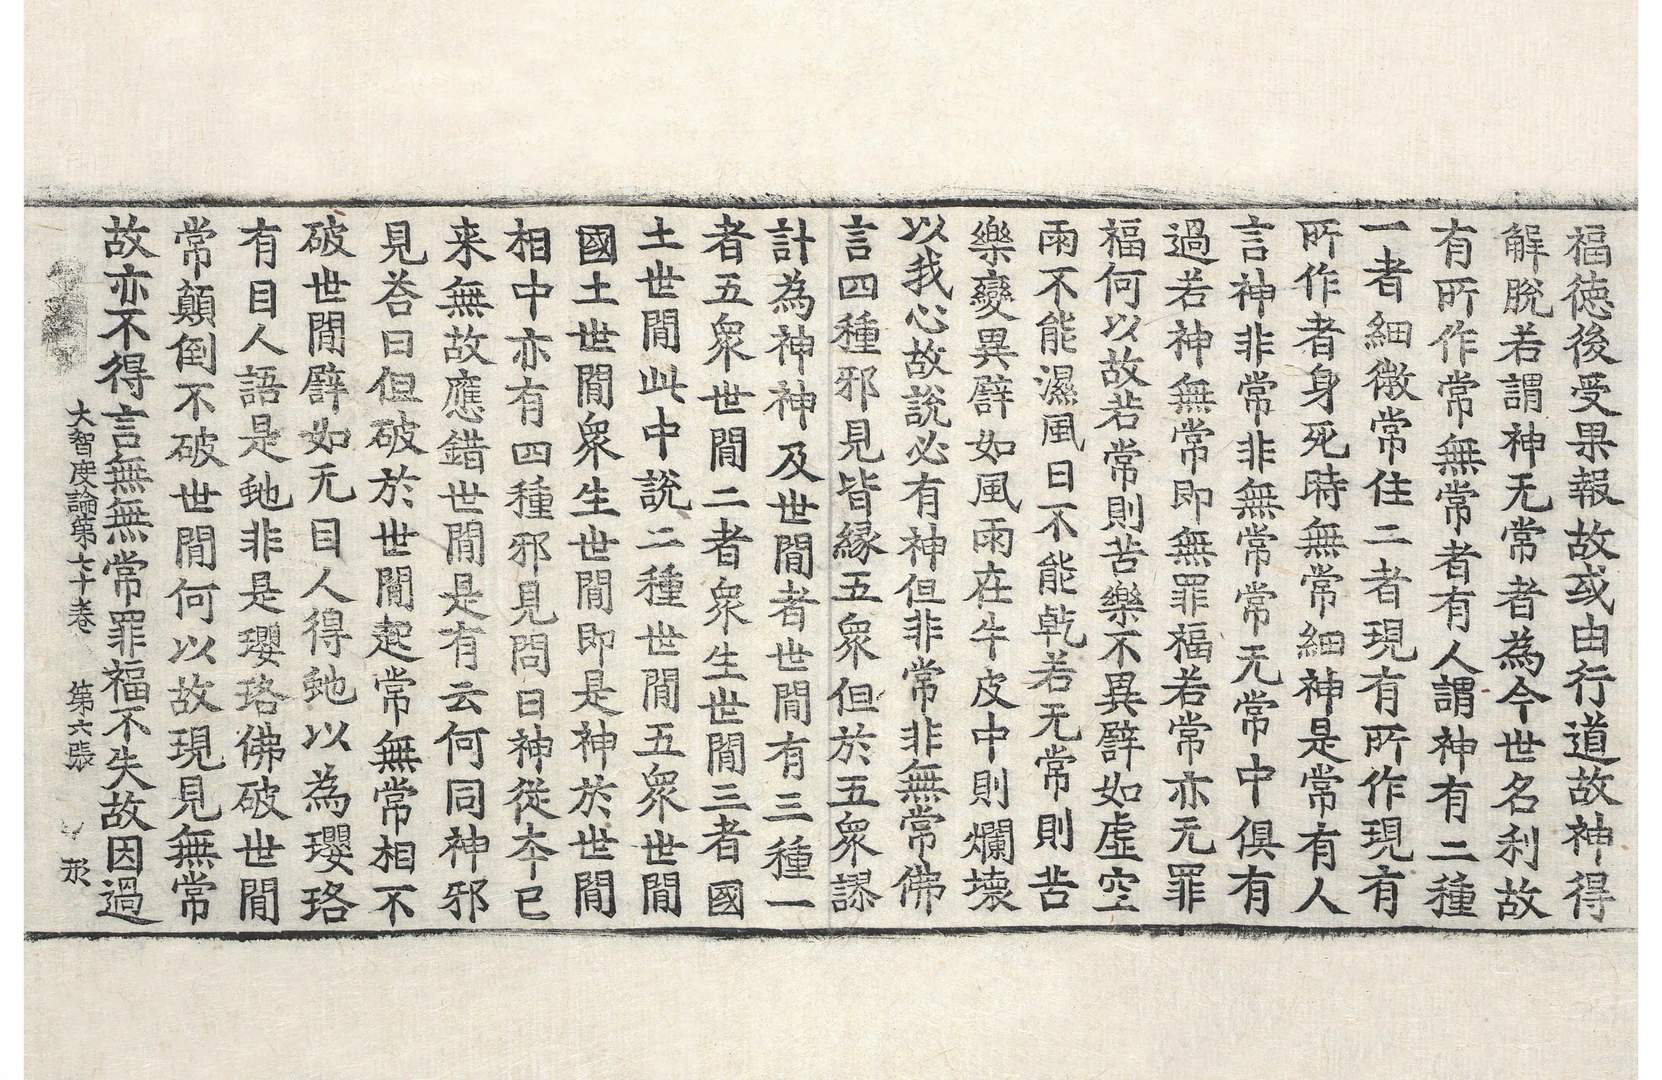 福德後受果報故或由行道故神得
解脫若謂神无常者為今世名利故
有所作常無常者有人謂神有二種
一者細微常住二者現有所作現有
所作者身死時無常細神是常有人
言神非常非無常常无常中俱有
過若神無常即無罪福若常亦无罪
福何以故若常則苦樂不異譬如虛空
雨不能濕風日不能乾若无常則苦
樂變異譬如風雨在牛皮中則爛壞
以我心故說必有神但非常非無常佛
言四種邪見皆緣五衆但於五衆謬
計為神神及世閒者世閒有三種一
者五衆世閒二者衆生世閒三者國
土世閒此中說二種世閒五衆世閒
國土世閒衆生世閒即是神於世閒
相中亦有四種邪見問曰神從夲已
来無故應錯世閒是有云何同神邪
見荅曰但破於世閒起常無常相不
破世閒譬如无目人得虵以為瓔珞
有目人語是虵非是瓔珞佛破世閒
常顛倒不破世閒何以故現見無常
故亦不得言無無常罪福不失故因過
大智度論第七十卷 第六張 形